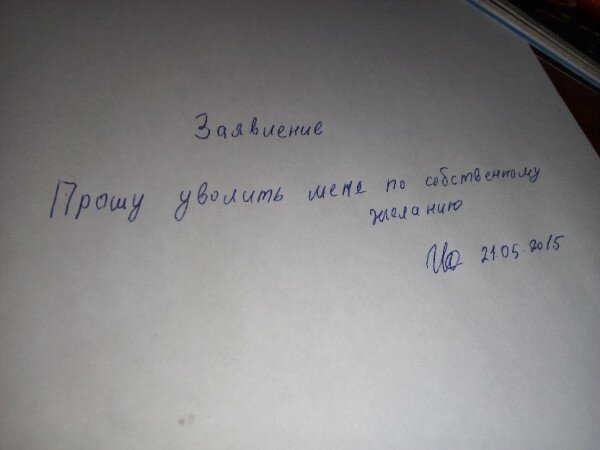 Заявление
Прошу уволить меня по собственному
желанию
21.05.2015